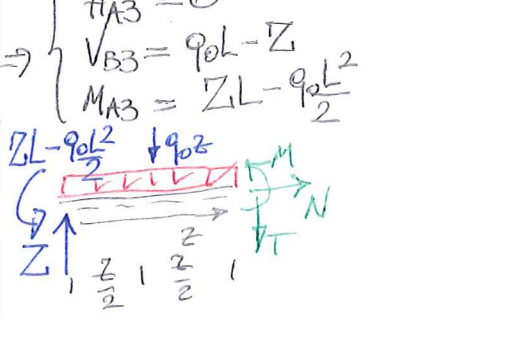 HA3 = 0
⇒ { VB3 = q₀L - Z
MA3 = ZL - q₀L²/2
ZL - q₀L²/2 ↓ q₀z
M
N
Z
z
T
z/2 z/2